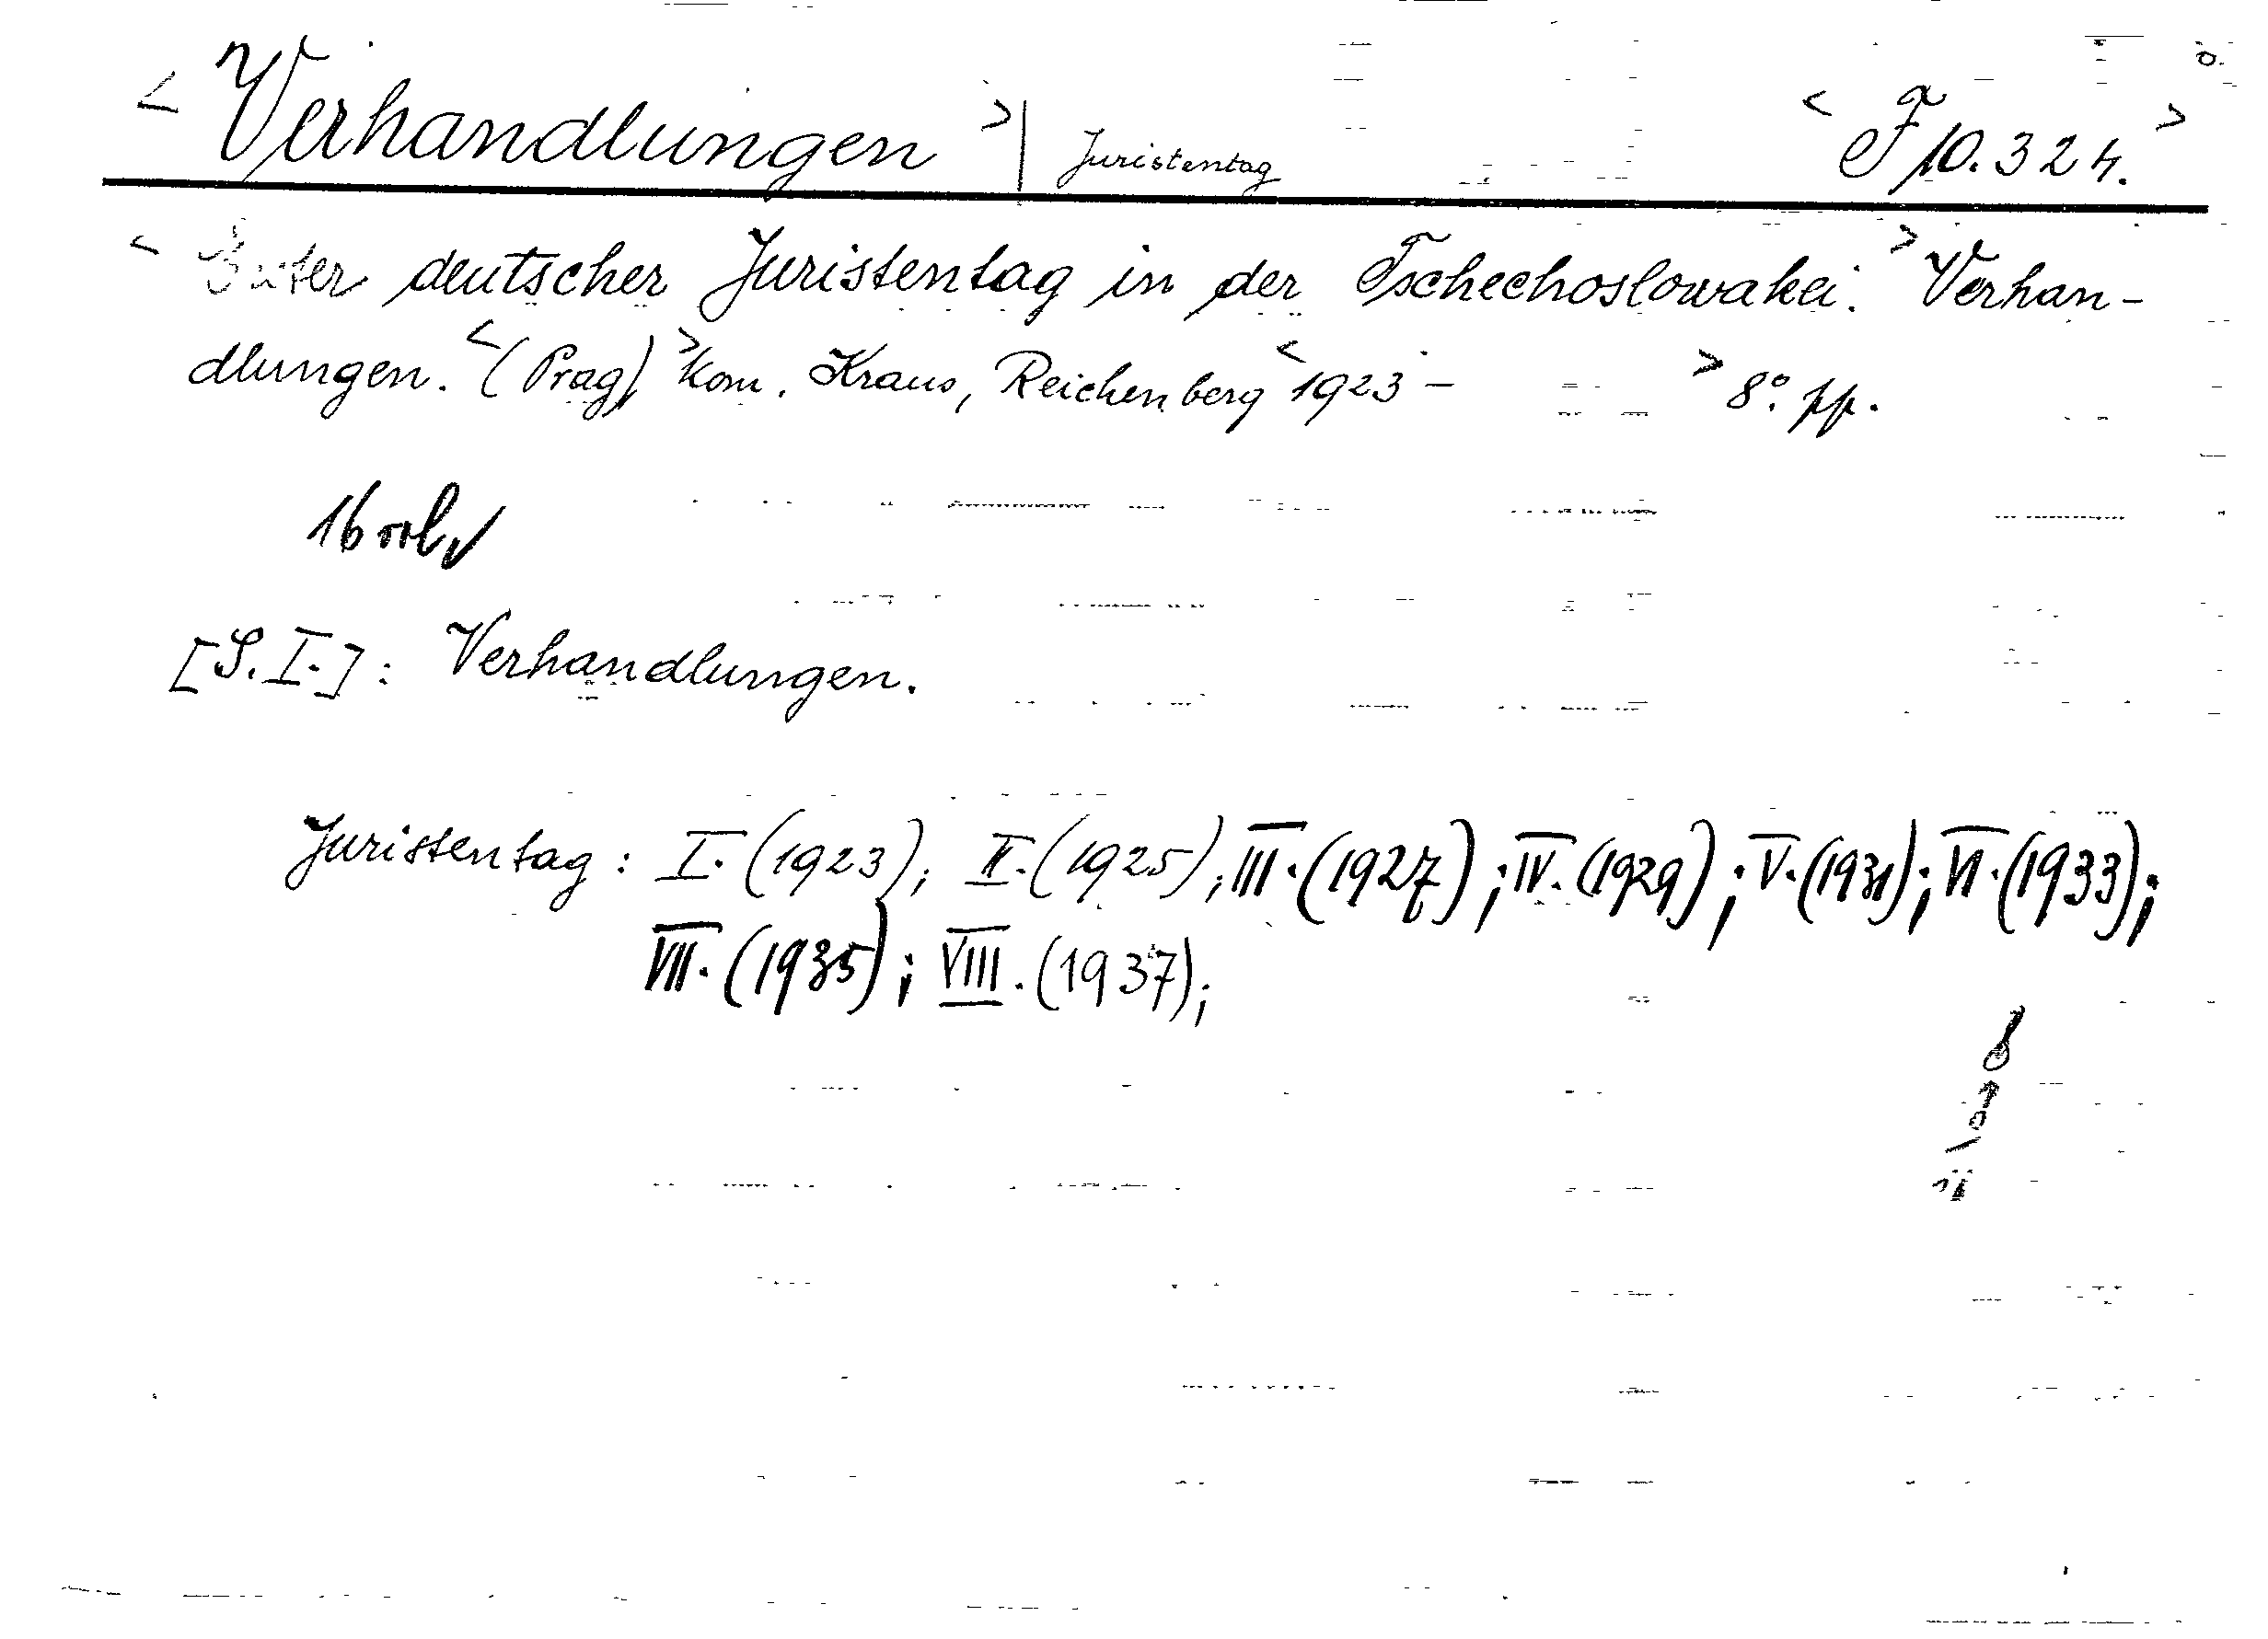 < Verhandlungen > | Juristentag < F 10.324. >
< deutscher Juristentag in der Tschechoslowakei. > Verhan-
dlungen. < (Prag) > Kom. Kraus, Reichenberg < 1923 - > 8°. pp.
16 vol.
[S. I.] : Verhandlungen.
Juristentag : I. (1923); II. (1925); III. (1927); IV. (1929); V. (1931); VI. (1933);
VII. (1935); VIII. (1937);